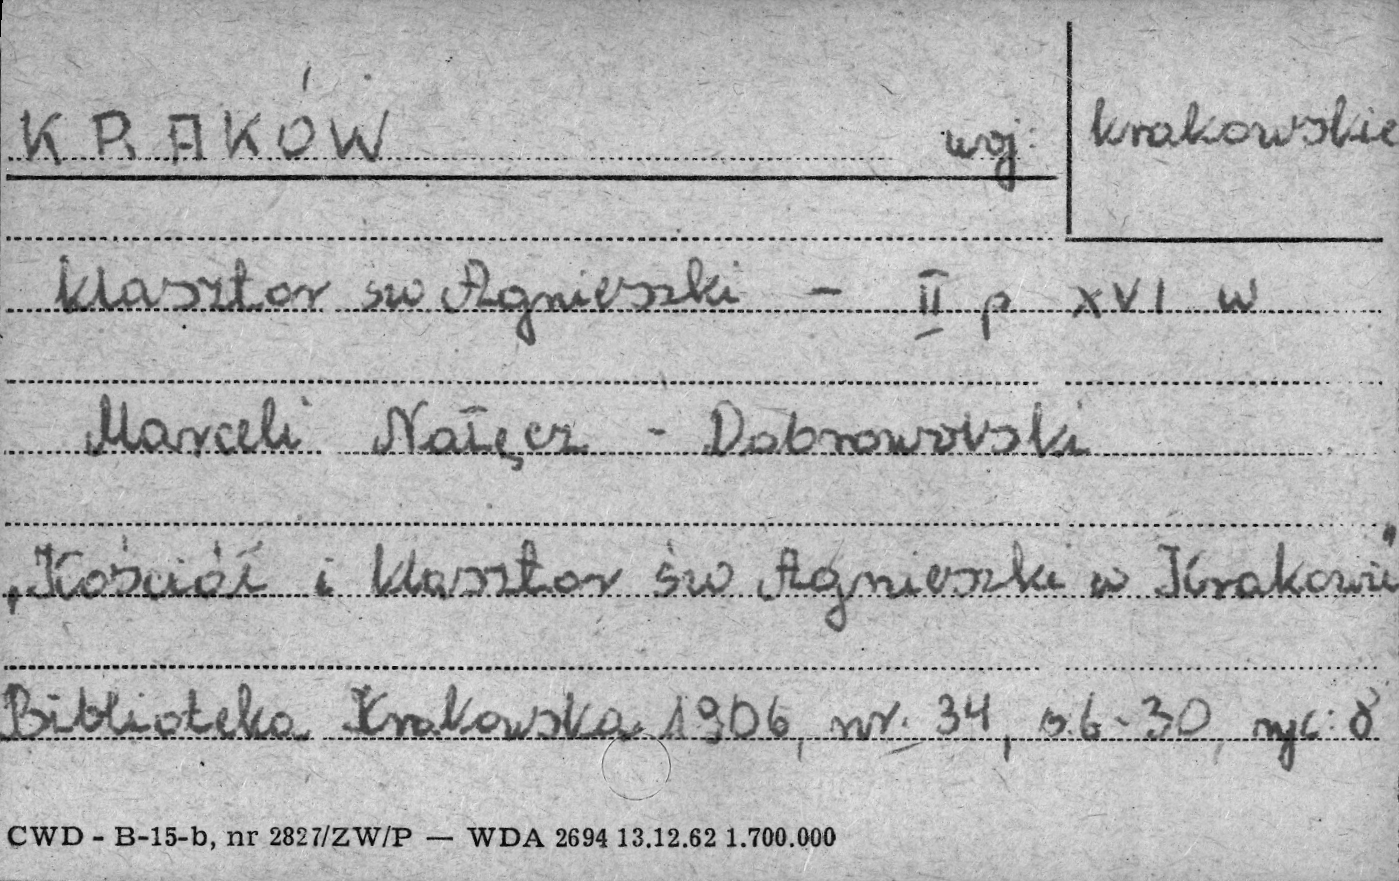 KRAKÓW woj: krakowskie
klasztor św Agnieszki - II p XVI w
Marceli Nałęcz - Dobrowolski
„Kościół i klasztor św Agnieszki w Krakowie"
Biblioteka Krakowska 1906, nr. 34, s.6-30, ryc: 8
CWD - B-15-b, nr 2827/ZW/P — WDA 2694 13.12.62 1.700.000